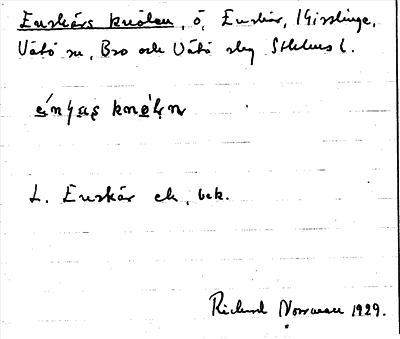 Enskärs knölen, ö, Enskär, Gisslinge,
Vätö sn, Bro och Vätö skg Sthlms l.
L. Enskär ek. bek.
Richard Norrman 1929.